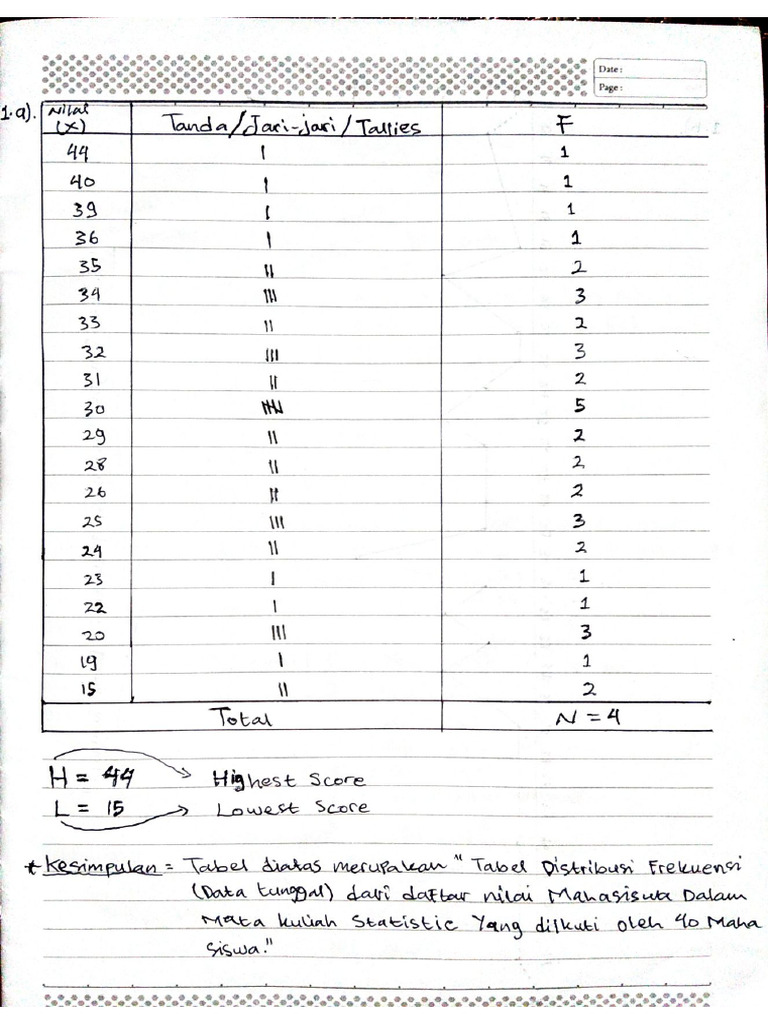 Date:
Page:
1.a).
Nilai (X) Tanda/Jari-jari/Tallies F
44 I 1
40 I 1
39 I 1
36 I 1
35 II 2
34 III 3
33 II 2
32 III 3
31 II 2
30 IIII 5
29 II 2
28 II 2
26 II 2
25 III 3
24 II 2
23 I 1
22 I 1
20 III 3
19 I 1
15 II 2
Total N = 4
H = 44 Highest Score
L = 15 Lowest Score
* Kesimpulan = Tabel diatas merupakan "Tabel Distribusi Frekuensi
(Data tunggal) dari daftar nilai Mahasiswa Dalam
Mata kuliah Statistic Yang diikuti oleh 40 Maha
siswa."